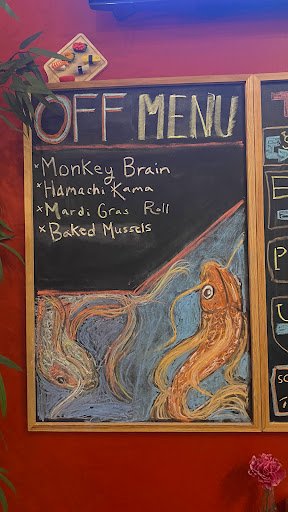 OFF MENU
× Monkey Brain
× Hamachi Kama
× Mardi Gras Roll
× Baked Mussels